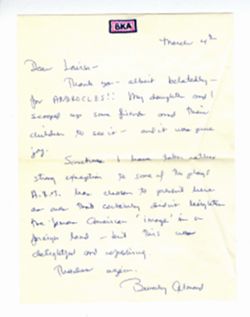 BKA
March 4th
Dear Louise -
Thank you - albeit belatedly -
for ANDROCLES!! My daughter and I
scooped up some friends and their
children to see it - and it was pure
joy.
Sometimes I have taken rather
strong exception to some of the plays
A.B.M. has chosen to present here
as ones that certainly didn't heighten
the American 'image' in a
foreign land - but this was
delightful and
Thanks again.
Beverly